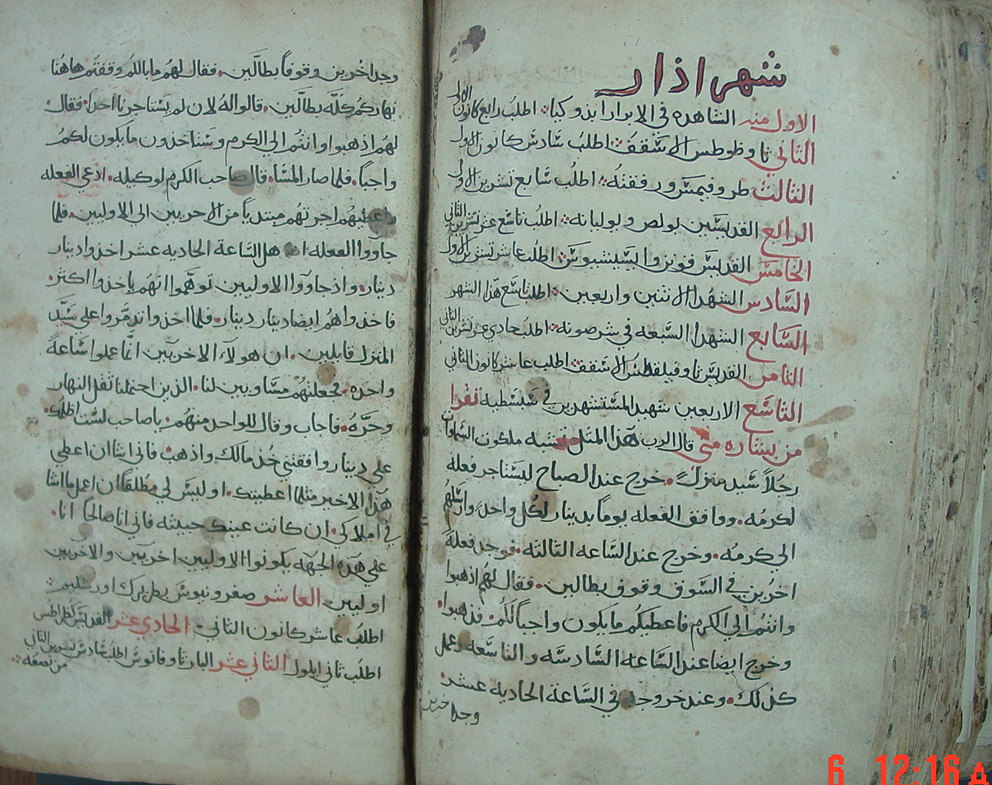 شهر اذار
الاول منه الشاهده في الابرار ابدوكيا اطلب رابع كانون الاول
الثاني ثاوظوطس الاسقف اطلب سادس كانون الاول
الثالث طروفيمس ورفقته اطلب سابع تشرين الاول
الرابع القديسين بولص ويوليانه اطلب تاسع عشر تشرين الثاني
الخامس القديس قونن والسلينيوس اطلب عاشر تشرين الاول
السادس الشهدا الاثنين واربعين اطلب تاسع هذا الشهر
السابع الشهدا السبعه في شرصونه اطلب حادي عشر تشرين الثاني
الثامن القديس ثاوفيلقطس الاسقف اطلب عاشر كانون الثاني
التاسع الاربعين شهيد المستشهدين في سبسطيه نقرا
من بشاره متى قال الرب هذا المثل تشبه ملكوت السماوات
رجلاً سيد منزل خرج عند الصباح ليستاجر فعله
لكرمه ووافق الفعله يوماً بدينار لكل واحد وارسلهم
الى كرمه وخرج عند الساعه الثالثه فوجد فعلة
اخرين في السوق وقوف بطالين فقال لهم اذهبوا
وانتم الى الكرم فاعطيكم ما يكون واجباً لكم فذهبوا
وخرج ايضا عند الساعه السادسه والتاسعه وعمل
كذلك وعند خروجه في الساعة الحاديه عشر
وجد اخرين
وجد اخرين وقوفاً بطالين فقال لهم ما بالكم وقفتم هاهنا
نهاركم كله بطالين قالوا له لان لم يستاجرنا احد فقال
لهم اذهبوا وانتم الى الكرم وستاخذون ما يكون لكم
واجباً فلما صار المسا قال صاحب الكرم لوكيله ادعي الفعله
واعطيهم اجرتهم مبتدياً من الاخريين الى الاوليين فلما
جاووا الفعله اهل الساعة الحاديه عشر اخذوا دينار
دينار واذ جاووا الاوليين توهموا انهم ياخذوا اكثر
فاخذوا هم ايضا دينار دينار فلما اخذوا تذمروا على سيد
المنزل قايلين ان هولآ الاخريين انما عملوا ساعة
واحده فجعلتهم مساويين لنا الذين احتملنا ثقل النهار
وحره فاجاب وقال للواحد منهم يا صاحب لست اظلمك
على دينار وافقتني خذ مالك واذهب فاني اشا ان اعطي
هذا الاخير مثلما اعطيتك اوليس لي مطلقاً ان اعمل ما اشا
في املاكي ان كانت عينك خبيثه فاني انا صالحاً انا
على هذه الجهه يكونوا الاوليين اخريين والاخريين
اوليين العاشر صفرونيوس بطريرك اورشليم
اطلب عاشر كانون الثاني الحادي عشر القديس
اطلب ثاني ايلول الثاني عشر البار ثاوفانوس اطلب سادس تشرين الثاني
من نصفه
6 12:16